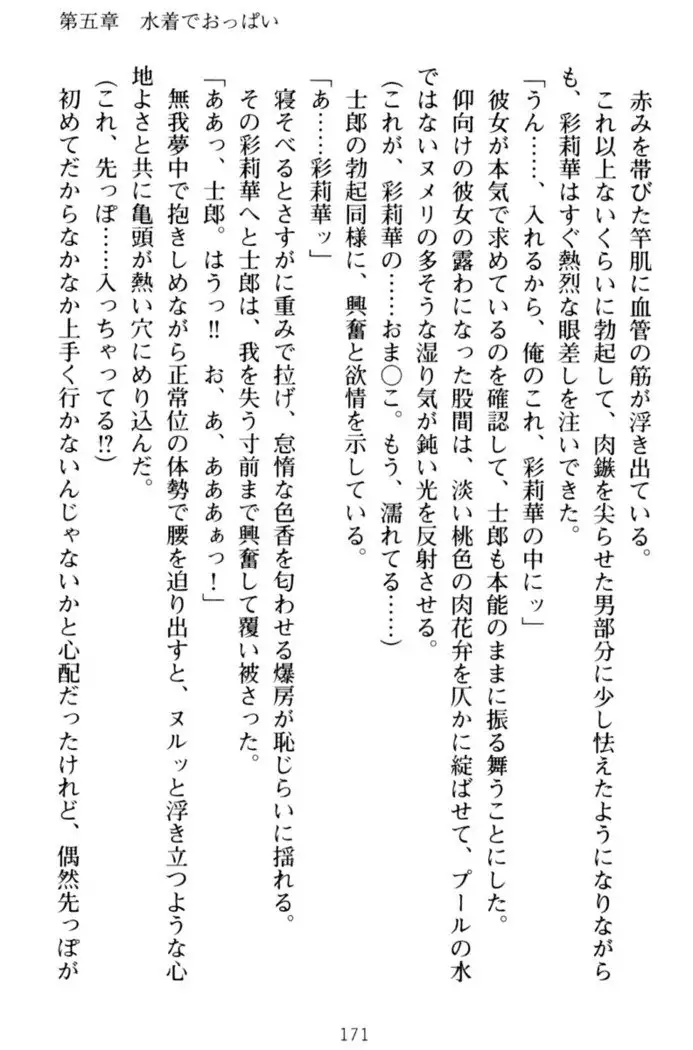 第五章　水着でおっぱい
赤みを帯びた竿肌に血管の筋が浮き出ている。
これ以上ないくらいに勃起して、肉鏃を尖らせた男部分に少し怯えたようになりながら
も、彩莉華はすぐ熱烈な眼差しを注いできた。
「うん……、入れるから、俺のこれ、彩莉華の中にッ」
彼女が本気で求めているのを確認して、士郎も本能のままに振る舞うことにした。
仰向けの彼女の露わになった股間は、淡い桃色の肉花弁を仄かに綻ばせて、プールの水
ではないヌメリの多そうな湿り気が鈍い光を反射させる。
(これが、彩莉華の……おま〇こ。もう、濡れてる……)
士郎の勃起同様に、興奮と欲情を示している。
「あ……彩莉華ッ」
寝そべるとさすがに重みで拉げ、怠惰な色香を匂わせる爆房が恥じらいに揺れる。
その彩莉華へと士郎は、我を失う寸前まで興奮して覆い被さった。
「ああっ、士郎。はうっ!!　お、あ、あああぁっ！」
無我夢中で抱きしめながら正常位の体勢で腰を迫り出すと、ヌルッと浮き立つような心
地よさと共に亀頭が熱い穴にめり込んだ。
(これ、先っぽ……入っちゃってる!?)
初めてだからなかなか上手く行かないんじゃないかと心配だったけれど、偶然先っぽが
171